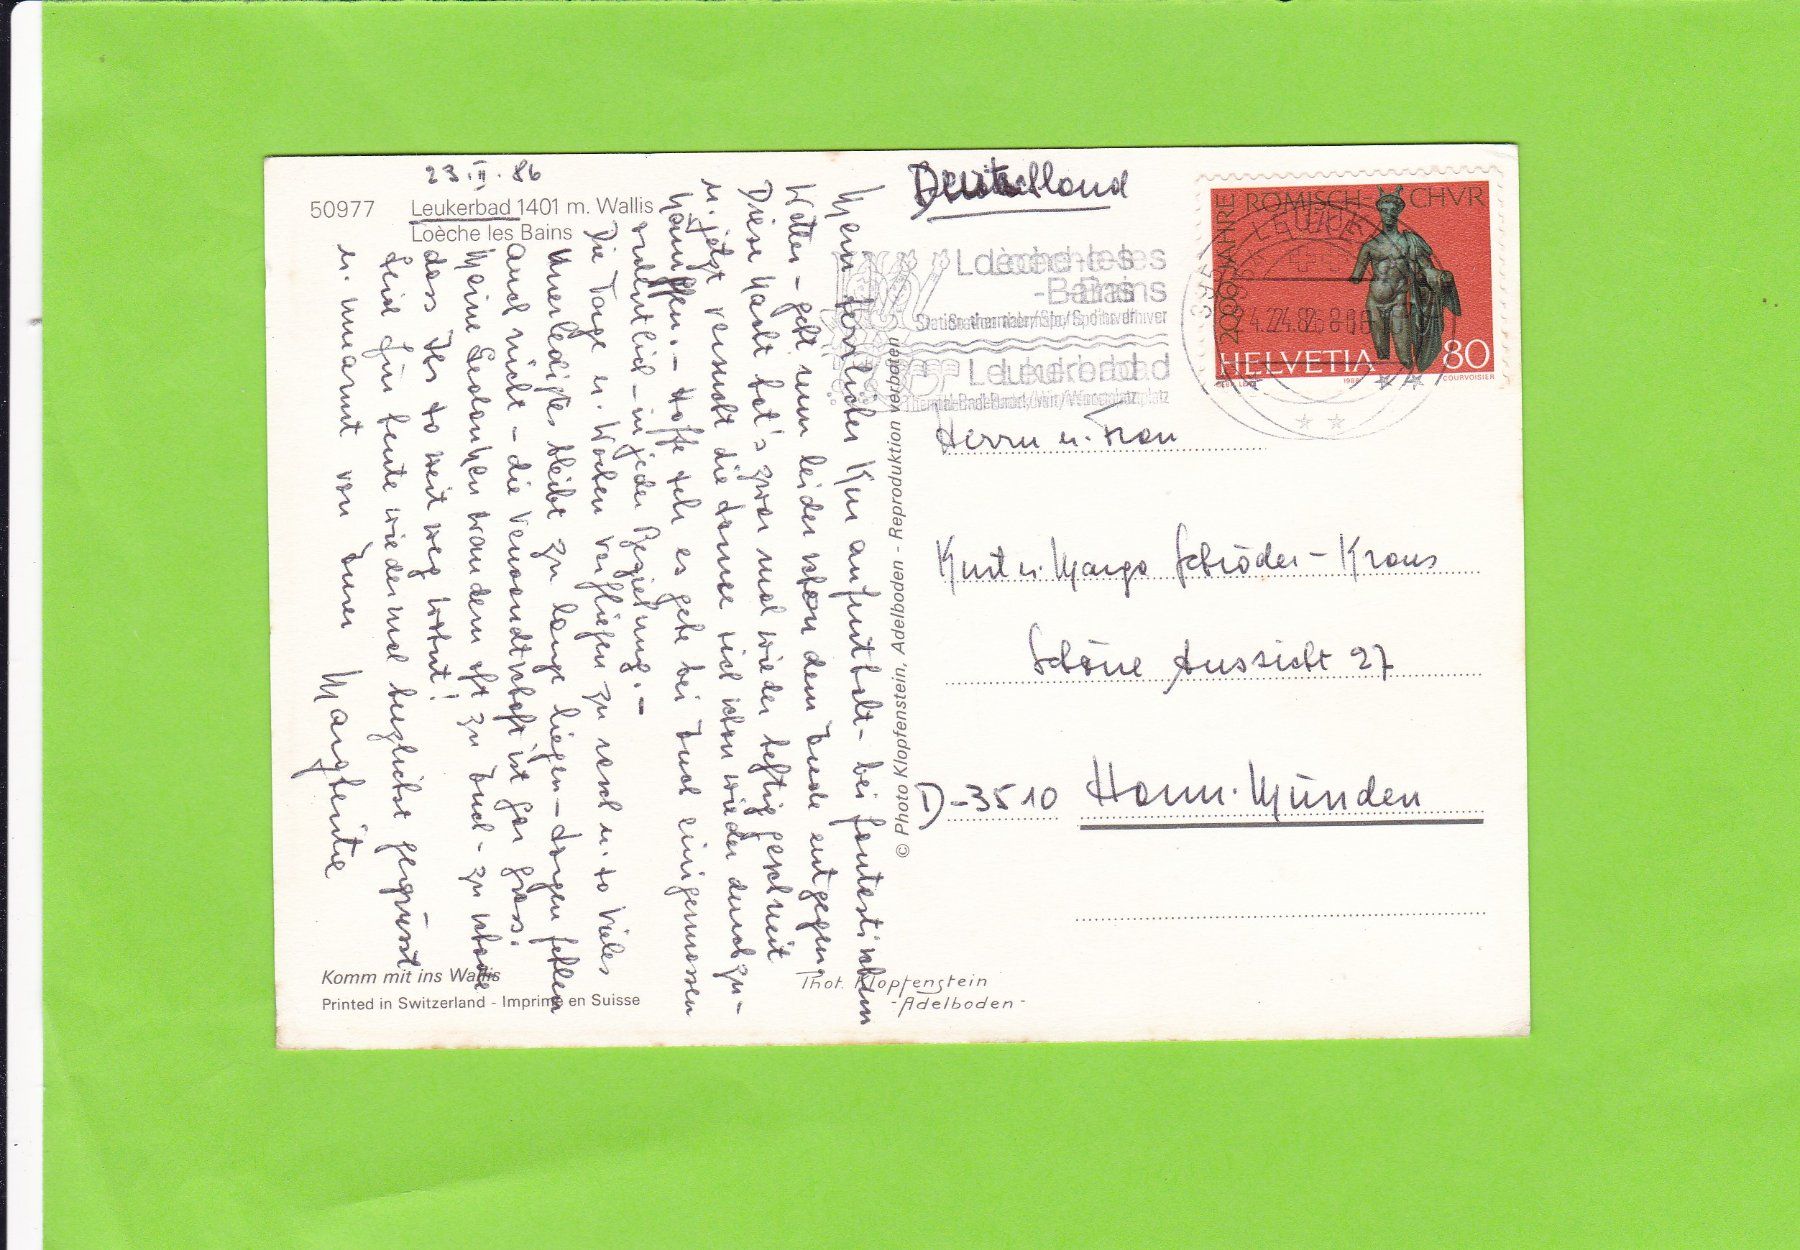 23.II.86
50977
Leukerbad 1401 m. Wallis
Loèche les Bains
Mein herrlicher Kuraufenthalt - bei fantastischem
Wetter - geht nun leider schon dem Ende entgegen
Diese Nacht hat's zwar mal wieder heftig geschneit
u. jetzt versucht die Sonne sich schon wieder durchzu-
kämpfen. - Hoffe sehr es gehe bei Euch einigermassen
ordentlich - in jeder Beziehung. -
Die Tage u. Wochen verfliegen zu rasch u. so Vieles
Unerledigtes bleibt zu lange liegen - Sorgen fehlen
auch nicht - die Verwandtschaft ist gar gross.
Meine Gedanken wandern oft zu Euch - zu schade
dass Ihr so weit weg wohnt!
Seid für heute wiedermal herzlichst gegrüsst
u. umarmt von Eurer Marghritie
Komm mit ins Wallis
Printed in Switzerland - Imprimé en Suisse
© Photo Klopfenstein, Adelboden - Reproduktion verboten
Phot. Klopfenstein
- Adelboden -
Deutschland
Loèche-les
-Bains
Station thermale/Sports d'hiver
Leukerbad
2000 JAHRE RÖMISCH CHVR
HELVETIA 80
1986
COURVOISIER
Herrn u. Frau
Kurt u. Margo Schröder-Kraus
Schöne Aussicht 27
D-3510 Hann. Münden